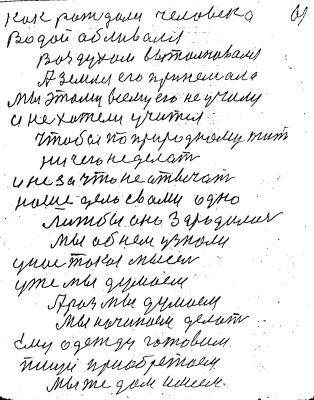 как рождали человека 61
Водой обливался
Воздухом выталковался
А земля его принемала
мы этому всему его не учили
и не хотели учится
чтобы по природному жит
ничего неделат
и не за что не отвечат
наше дело свами одно
лиш бы оно зародилос
мы об нем узнали
у нас такая мысел
уже мы думаем
А раз мы думаем
мы начинаем делат
ему одежду готовим
пищу приобретаем
мы же дом имеем.